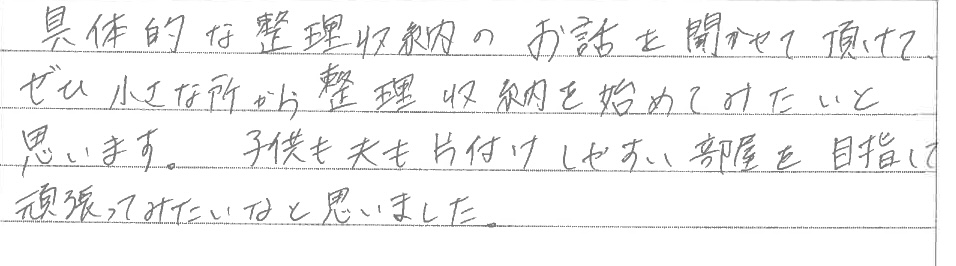 具体的な整理収納のお話を聞かせて頂けて、
ぜひ小さな所から整理収納を始めてみたいと
思います。子供も夫も片付けしやすい部屋を目指して
頑張ってみたいなと思いました。